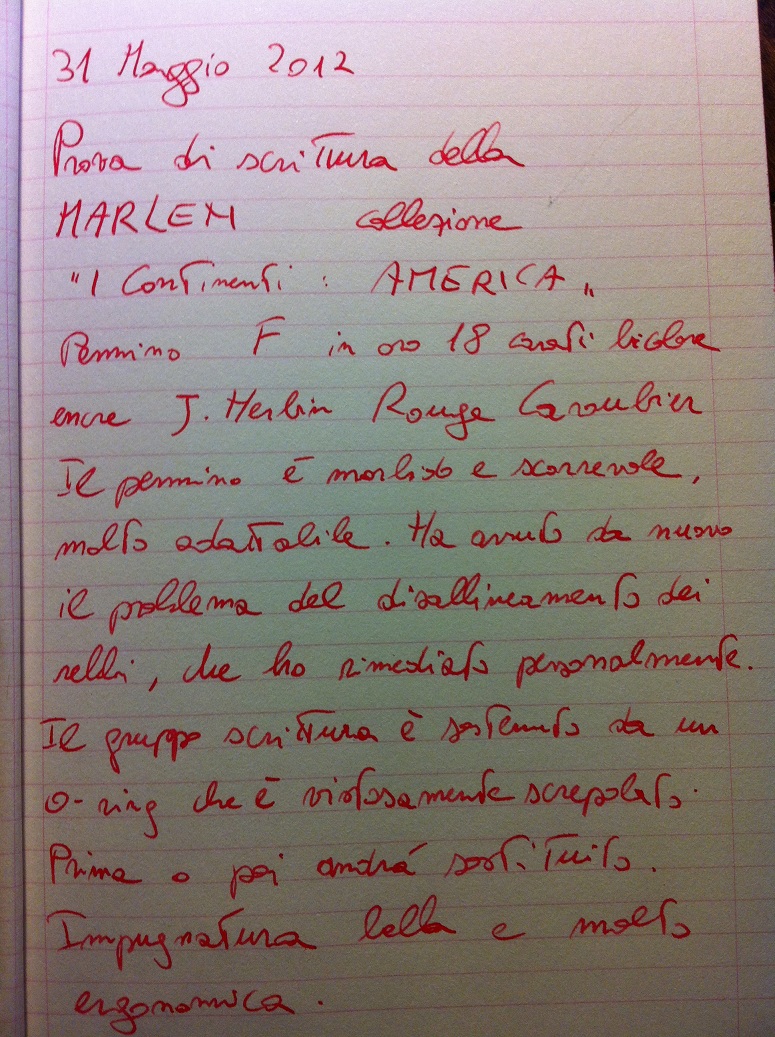 31 Maggio 2012
Prova di scrittura della
MARLEN collezione
"I Continenti: AMERICA"
Pennino F in oro 18 carati bicolore
encre J. Herbin Rouge Caroubier
Il pennino è morbido e scorrevole,
molto adattabile. Ha avuto da nuovo
il problema del disallineamento dei
rebbi, che ho rimediato personalmente.
Il gruppo scrittura è sostenuto da un
o-ring che è vistosamente screpolato.
Prima o poi andrà sostituito.
Impugnatura bella e molto
ergonomica.